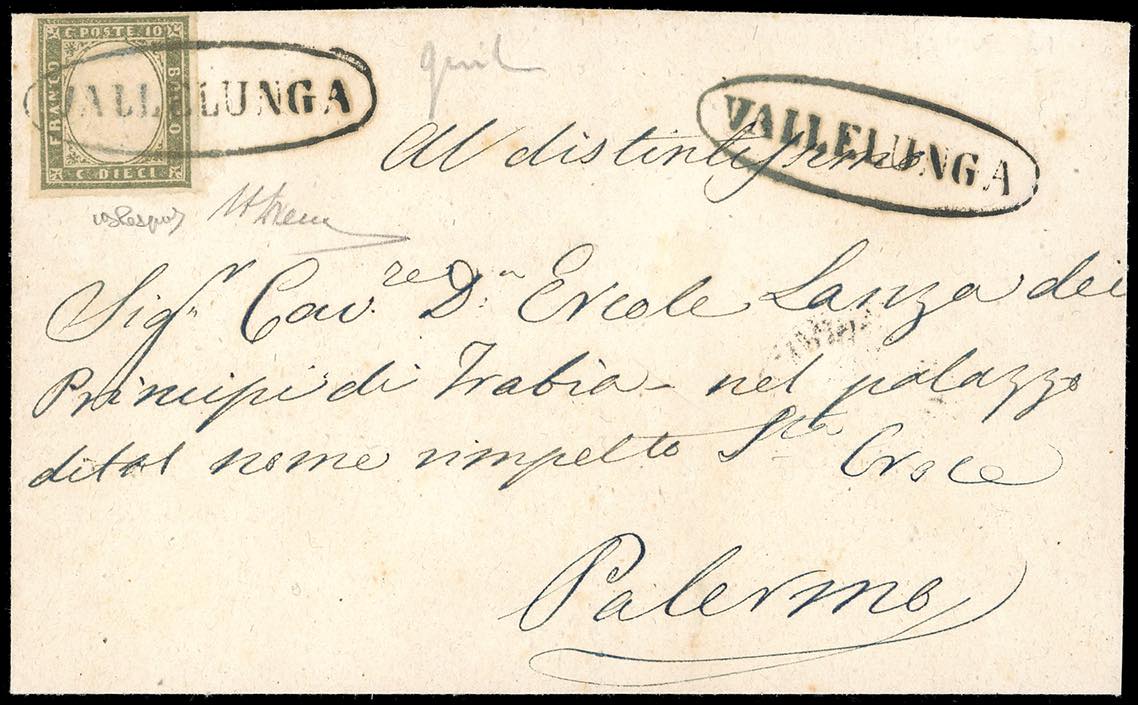 C. POSTE. 10
FRANCO
BOLLO
C. DIECI
VALLELUNGA
VALLELUNGA
Al distintissimo
Sigr Cav.re Dn Ercole Lanza dei
Principi di Trabia - nel palazzo
di tal nome rimpetto Sta Croce
Palermo